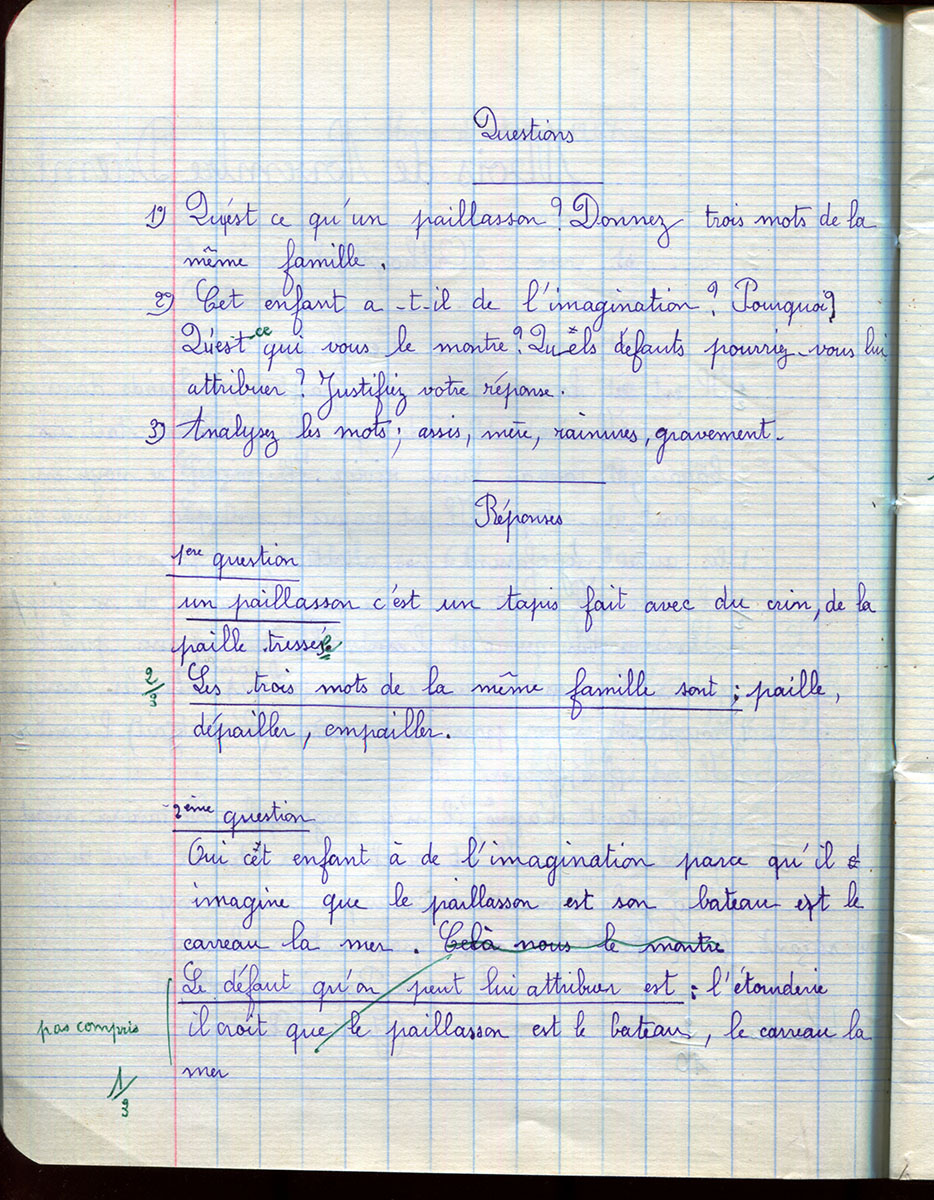 Questions
1°) Qu'est ce qu'un paillasson ? Donnez trois mots de la
même famille.
2°) Cet enfant a-t-il de l'imagination ? Pourquoi ?
Qu'est-ce qui vous le montre ? Quels défauts pourriez-vous lui
attribuer ? Justifiez votre réponse.
3°) Analysez les mots ; assis, mère, rainures, gravement.
Réponses
1ère question
un paillasson c'est un tapis fait avec du crin, de la
paille tressée
2/3
Les trois mots de la même famille sont : paille,
dépailler, empailler.
2ème question
Oui cet enfant à de l'imagination parce qu'il
imagine que le paillasson est son bateau est le
carreau la mer. Celà nous le montre
Le défaut qu'on peut lui attribuer est : l'étourderie
pas compris
il croit que le paillasson est le bateau, le carreau la
mer
1/3